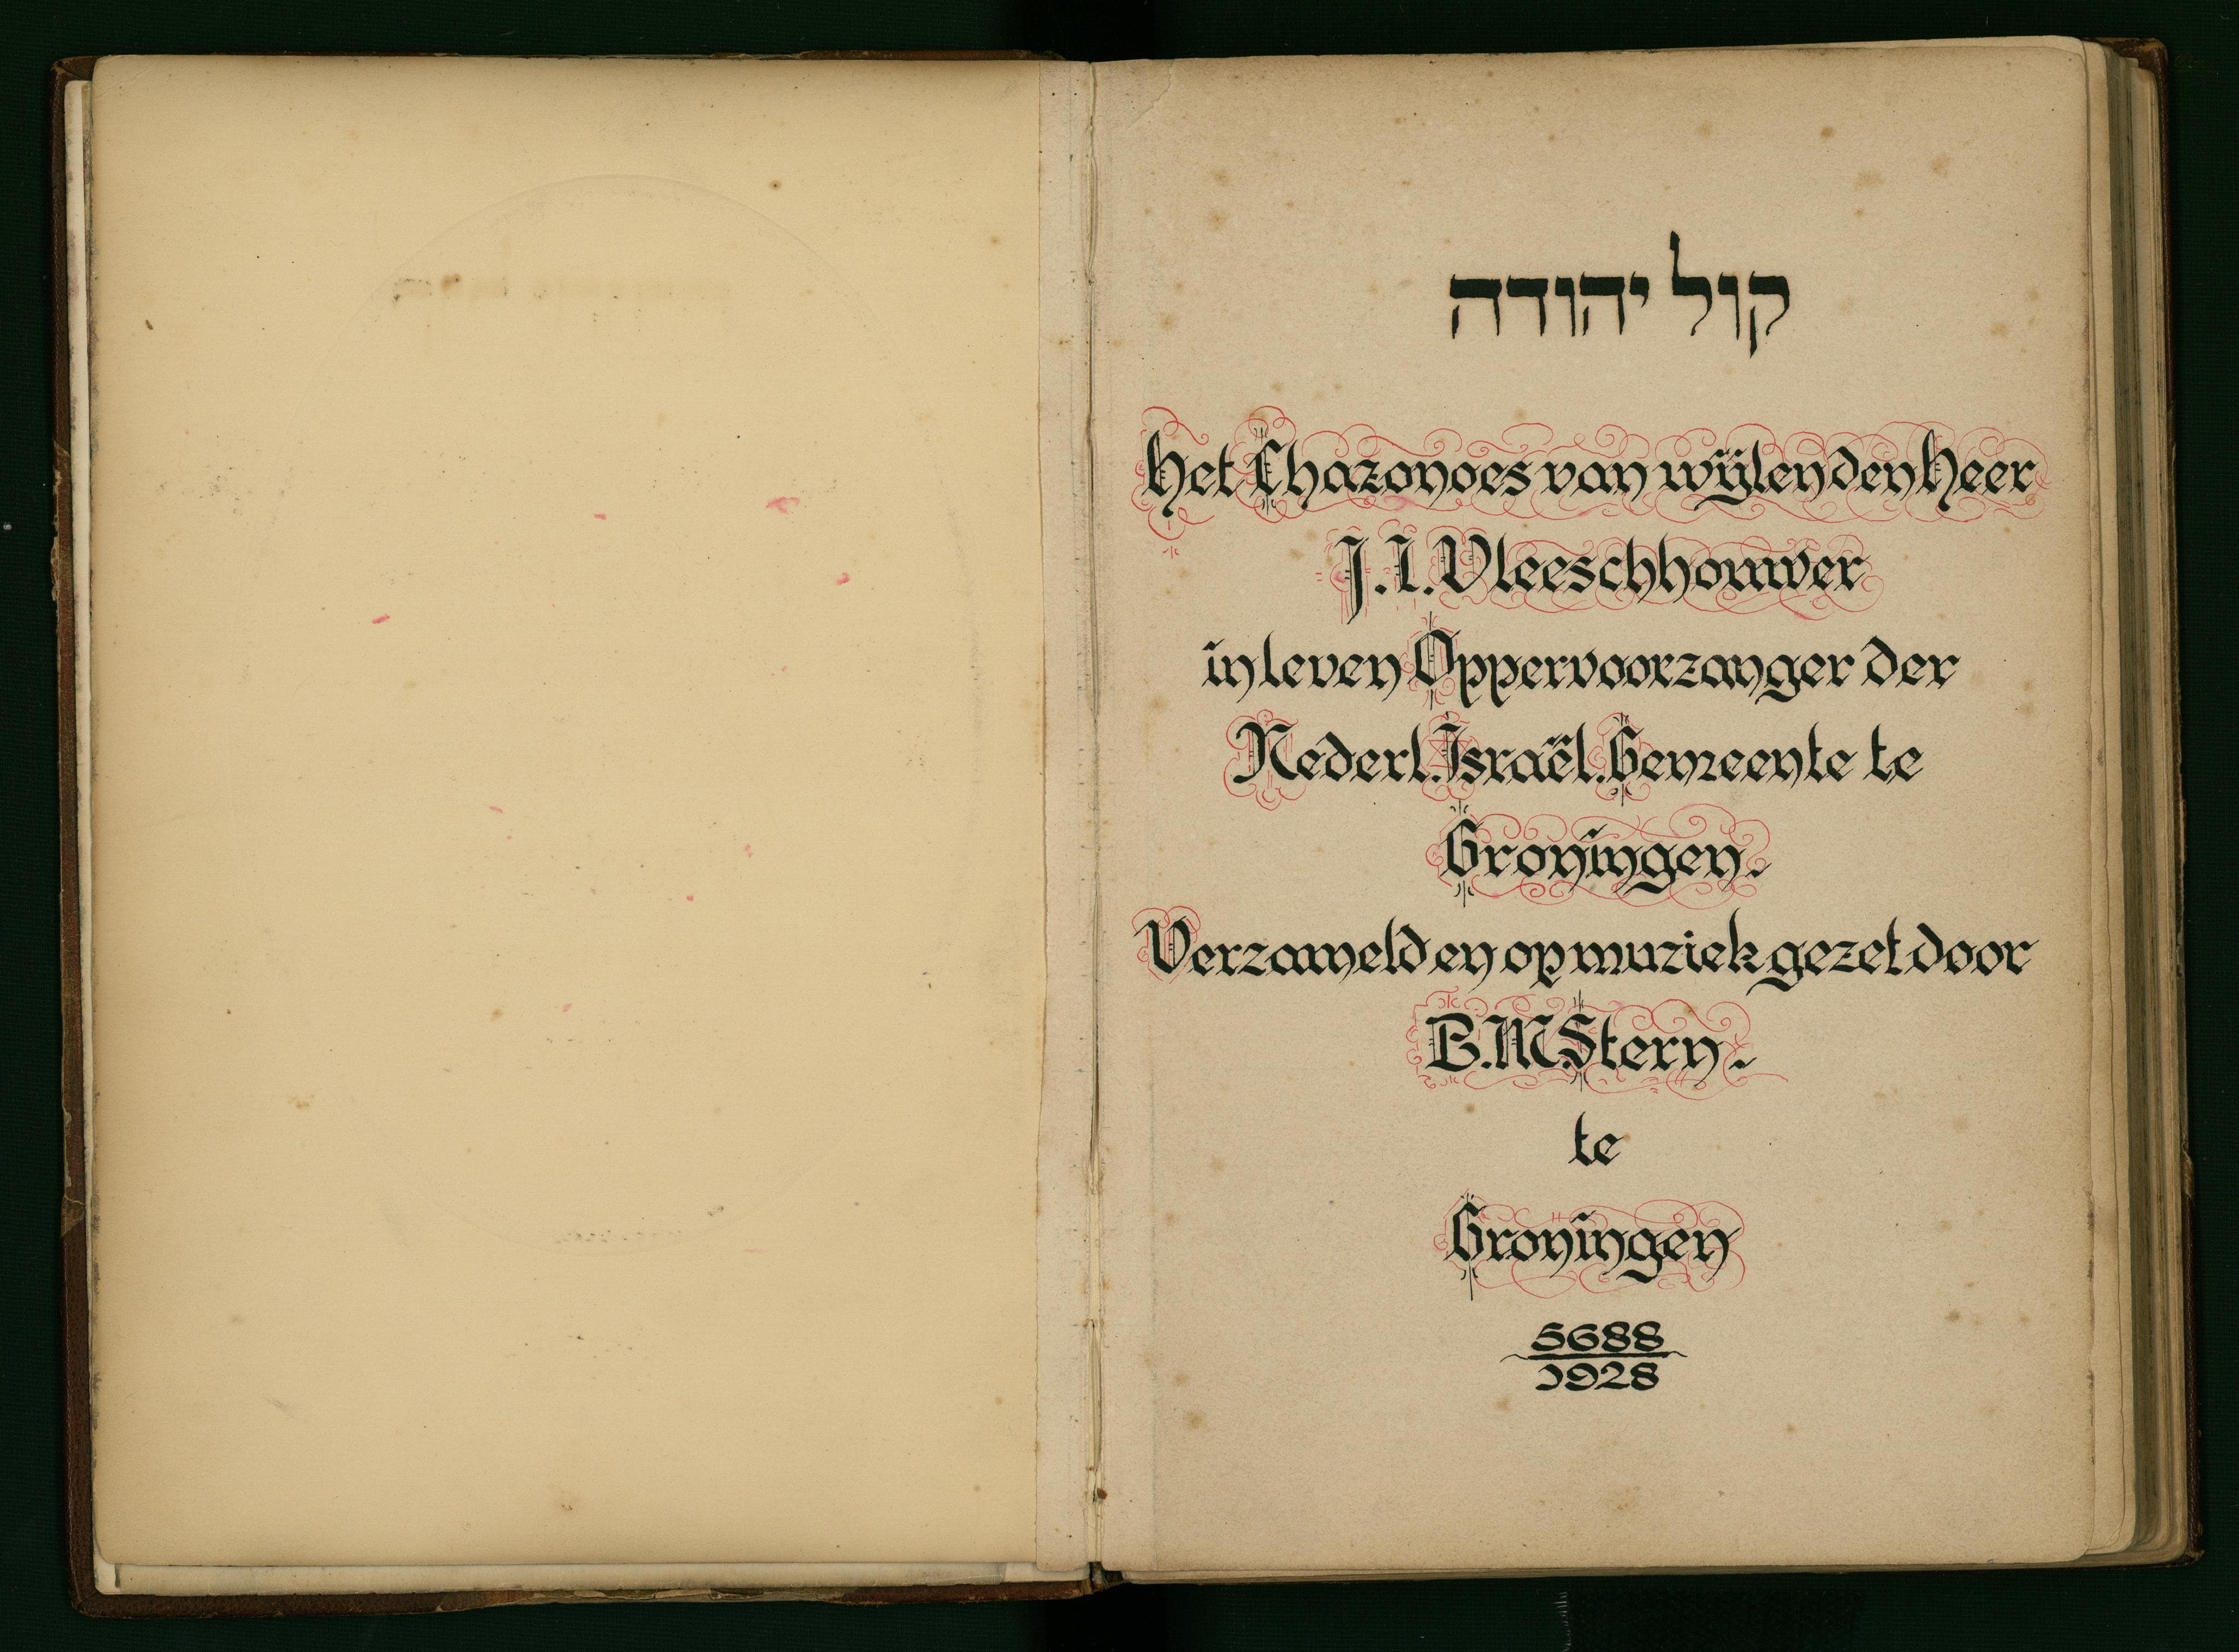 קול יהודה
Het Chazonoes van wijlen den Heer
J. I. Vleeschhouwer
in leven Oppervoorzanger der
Nederl. Israël. Gemeente te
Groningen.
Verzameld en op muziek gezet door
B. M. Stern.
te
Groningen
5688
1928